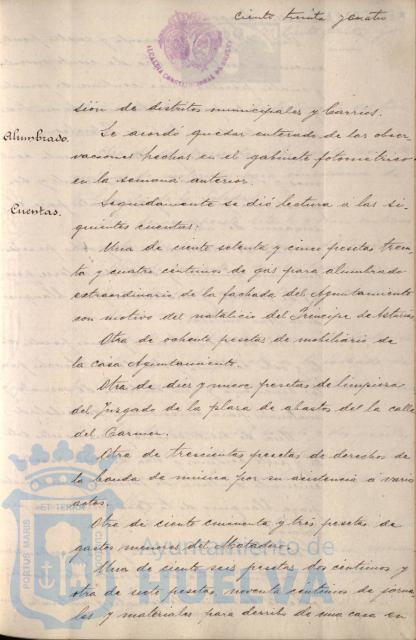 Ciento treinta y cuatro
sión de distritos municipales y barrios.
Alumbrado.
Se acordó quedar enterado de las obser-
vaciones hechas en el gabinete fotométrico
en la semana anterior.
Cuentas.
Seguidamente se dió lectura a las si-
guientes cuentas:
Una de ciento setenta y cinco pesetas trein-
ta y cuatro céntimos de gas para alumbrado
extraordinario de la fachada del Ayuntamiento
con motivo del natalicio del Príncipe de Asturias
Otra de ochenta pesetas de mobiliario de
la casa Ayuntamiento.
Otra de diez y nueve pesetas de limpieza
del Juzgado de la plaza de abastos del la calle
del Carmen.
Otra de trescientas pesetas de derechos de
la banda de música por su asistencia a varios
actos.
Otra de ciento cincuenta y tres pesetas de
gastos menores del Matadero.
Una de ciento seis pesetas dos céntimos y
otra de siete pesetas, noventa céntimos de jorna-
les y materiales para derribo de una casa en
PORTUS MARIS
ET TERRAE
Ayuntamiento de
HUELVA